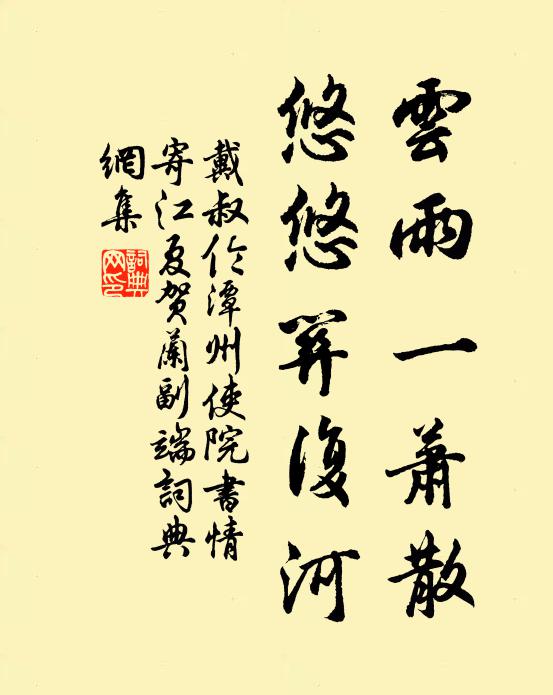 雲雨一蕭散
悠悠关復河
戴叔伦潭州使院書情
寄江夏賀蘭副端詞典
網集
詞典
网印